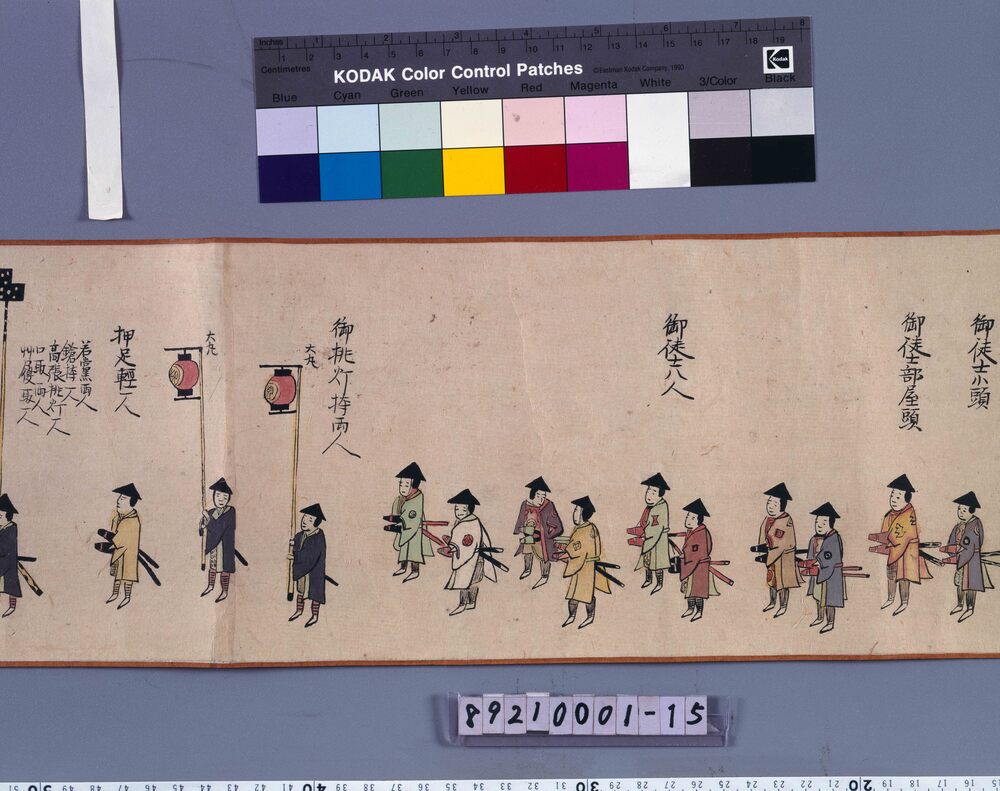 Inches 1 2 3 4 5 6 7 8
Centimetres 1 2 3 4 5 6 7 8 9 10 11 12 13 14 15 16 17 18 19
KODAK Color Control Patches ©Eastman Kodak Company, 1993
Kodak
Blue Cyan Green Yellow Red Magenta White 3/Color Black
御徒士小頭
御徒士部屋頭
御徒士八人
御挑灯持両人
大丸
大丸
押足輕一人
若黨両人
鎗持一人
高張挑灯一人
口取両人
草履取一人
89210001-15